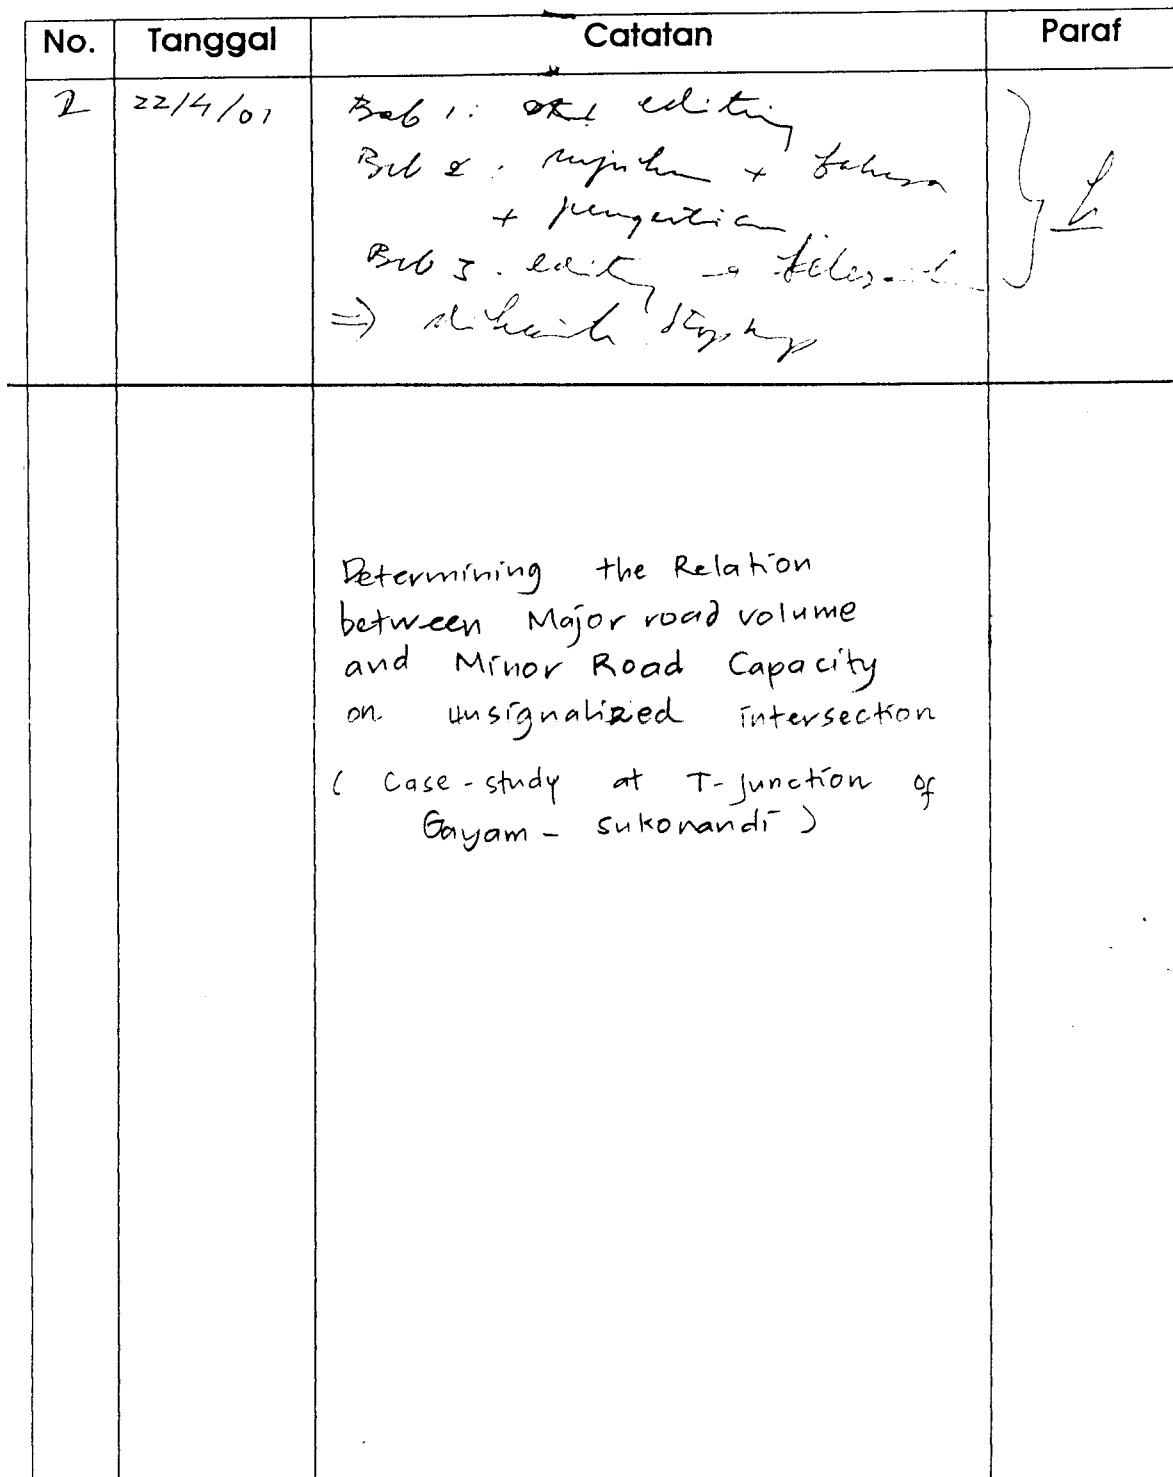 No. Tanggal Catatan Paraf
2 22/4/01 Bab 1: editing
Bab 2: rujukan + bahasa
+ pengertian
Bab 3. editing
⇒
Determining the Relation
between Major road volume
and Minor Road Capacity
on unsignalized intersection
( Case-study at T-Junction of
Gayam - Sukonandi )